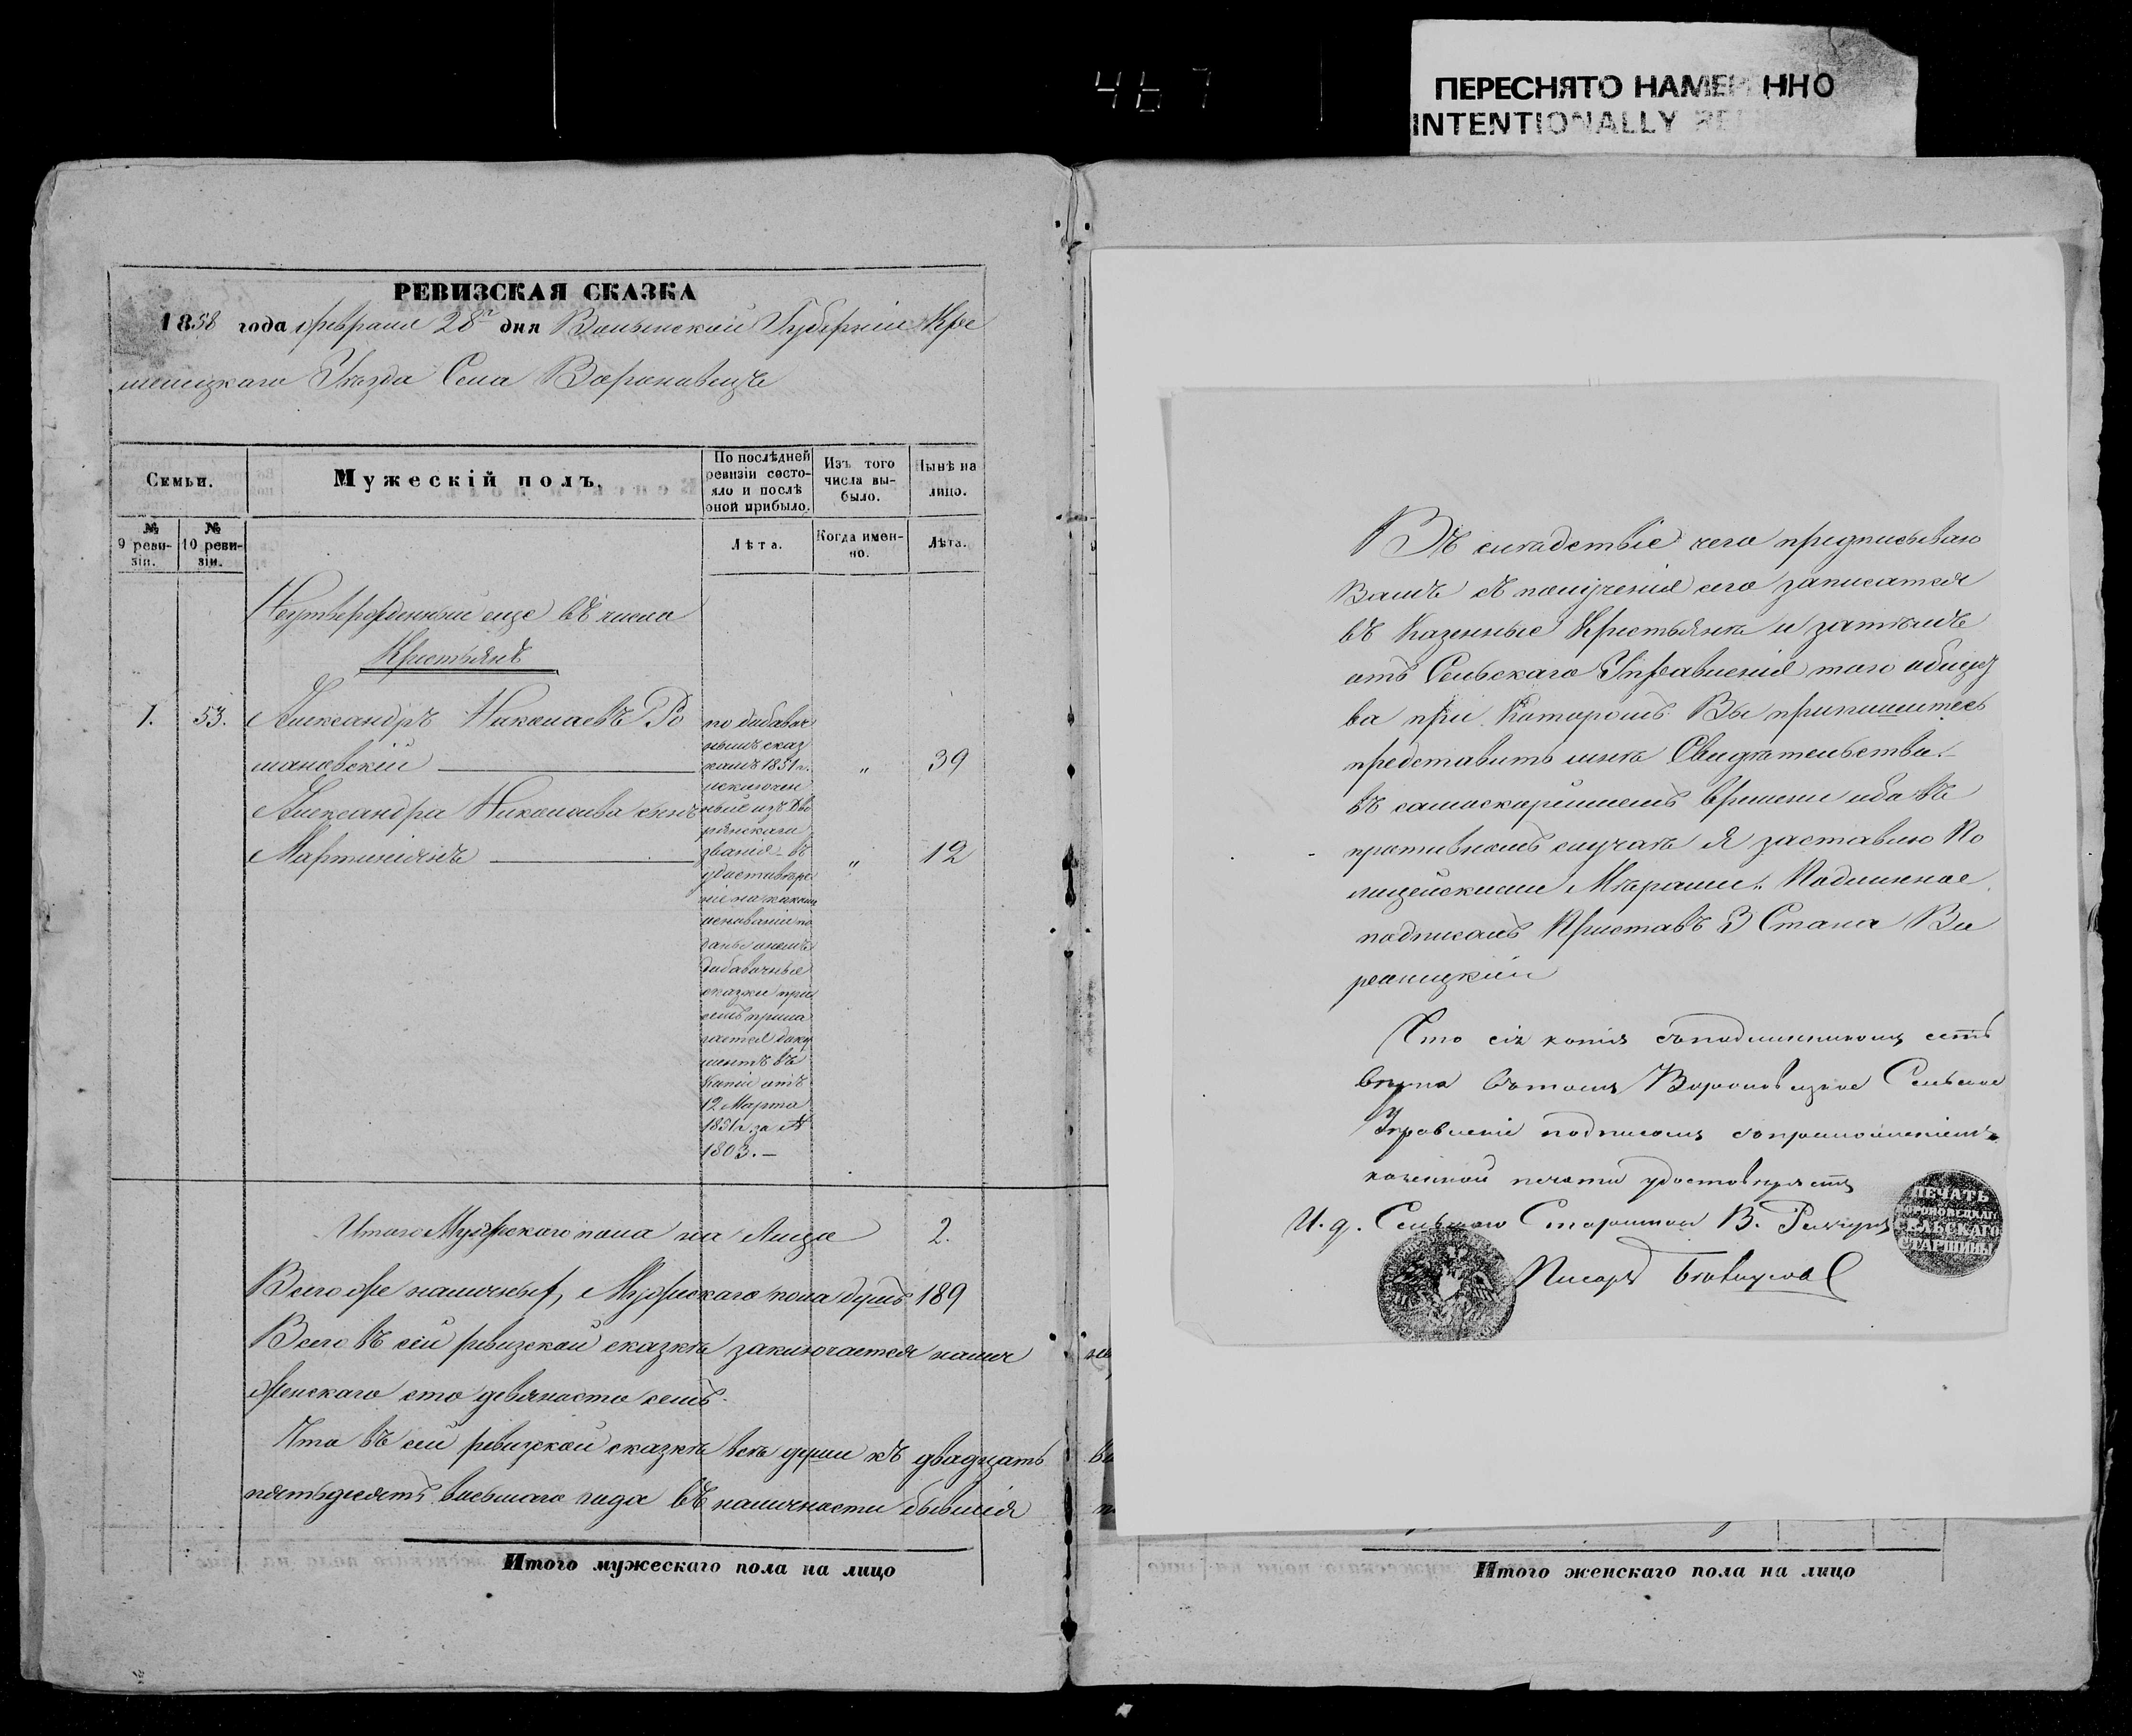 467
ПЕРЕСНЯТО НАМЕР ННО
INTENTIONALLY RE
РЕВИЗСКАЯ СКАЗКА
1858 года февраля 28го дня Волынской Губерніи Кре
менецкаго Уезда Села Вороновецъ
Семьи.
Мужескій полъ.
По послѣдней ревизіи состо-
яло и послѣ
оной прибыло.
Изъ того
числа вы-
было.
Нынѣ на
лицо.
№
9 реви-
зіи.
№
10 реви-
зіи.
Лѣта.
Когда имен-
но.
Лѣта.
Неутвержденный еще въ числа
Крестьянъ
1. 53. Александръ Николаевъ Ро
мановскій 39
Александра Николаева сынъ
Мартиніянъ 12
по добавоч
нымъ сказ
камъ 1851 г.
исключен
ные изъ Дво
рянскаго
званія въ
удостовѣре
ніе на каком
основаніи по
даны
добавочные
сказки при
семъ прила
гается доку
ментъ въ
Копіи отъ
12 Марта
1851 г. за №
1803. —
Итого Мужескаго пола на Лицо 2.
Всего же наличныхъ Мужескаго пола душъ 189
Всего въ сей ревизской сказкѣ заключается налич
Женскаго сто девяносто семь.
Что въ сей ревизской сказкѣ всѣ души къ двадцать
пятьдесятъ восьмаго года въ наличности бывшія
Итого мужескаго пола на лицо
Въ слѣдствіе чего предписываю
Вамъ съ полученія сего записатся
въ Казенные Крестьяне и затѣмъ
отъ Сельскаго Управленія того общест
ва при Которомъ Вы припишитесь
представить мнѣ Свидѣтельства
въ самоскорѣйшемъ времени ибо въ
противномъ случаѣ я заставлю По
лицейскими Мѣрами. Подлинное
подписалъ Приставъ 3 Стана
Что сія копія съ подлинникомъ есть
вѣрна въ томъ Вороновецкое Сельское
Управленіе подписомъ съ приложеніемъ
казенной печати удостовѣряетъ
И. д. Сельскаго Старшины В.
Писарь
ПЕЧАТЬ
ВОРОНОВЕЦКАГО
СЕЛЬСКАГО
СТАРШИНЫ
Итого женскаго пола на лицо